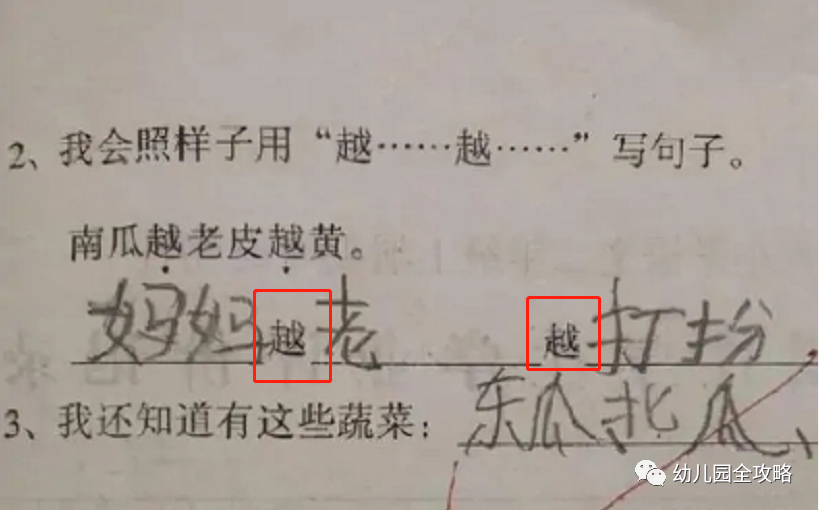 2、我会照样子用“越……越……”写句子。
南瓜越老皮越黄。
妈妈越老 越打扮
3、我还知道有这些蔬菜：东瓜、北瓜、
幼儿园全攻略